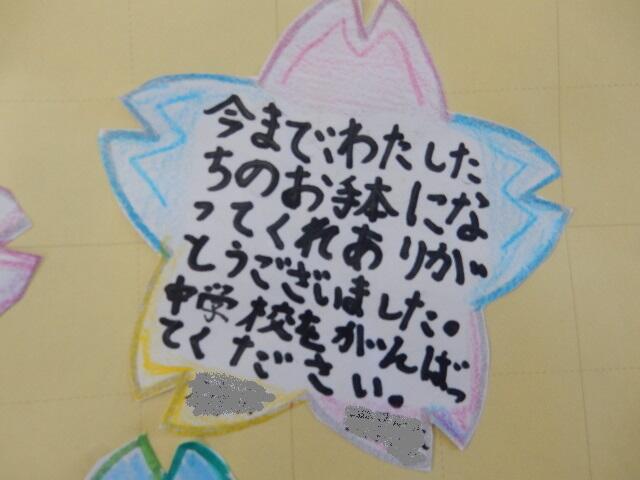 今まで、わたした
ちのお手本にな
ってくれありが
とうございました。
中学校をがんばっ
てください。